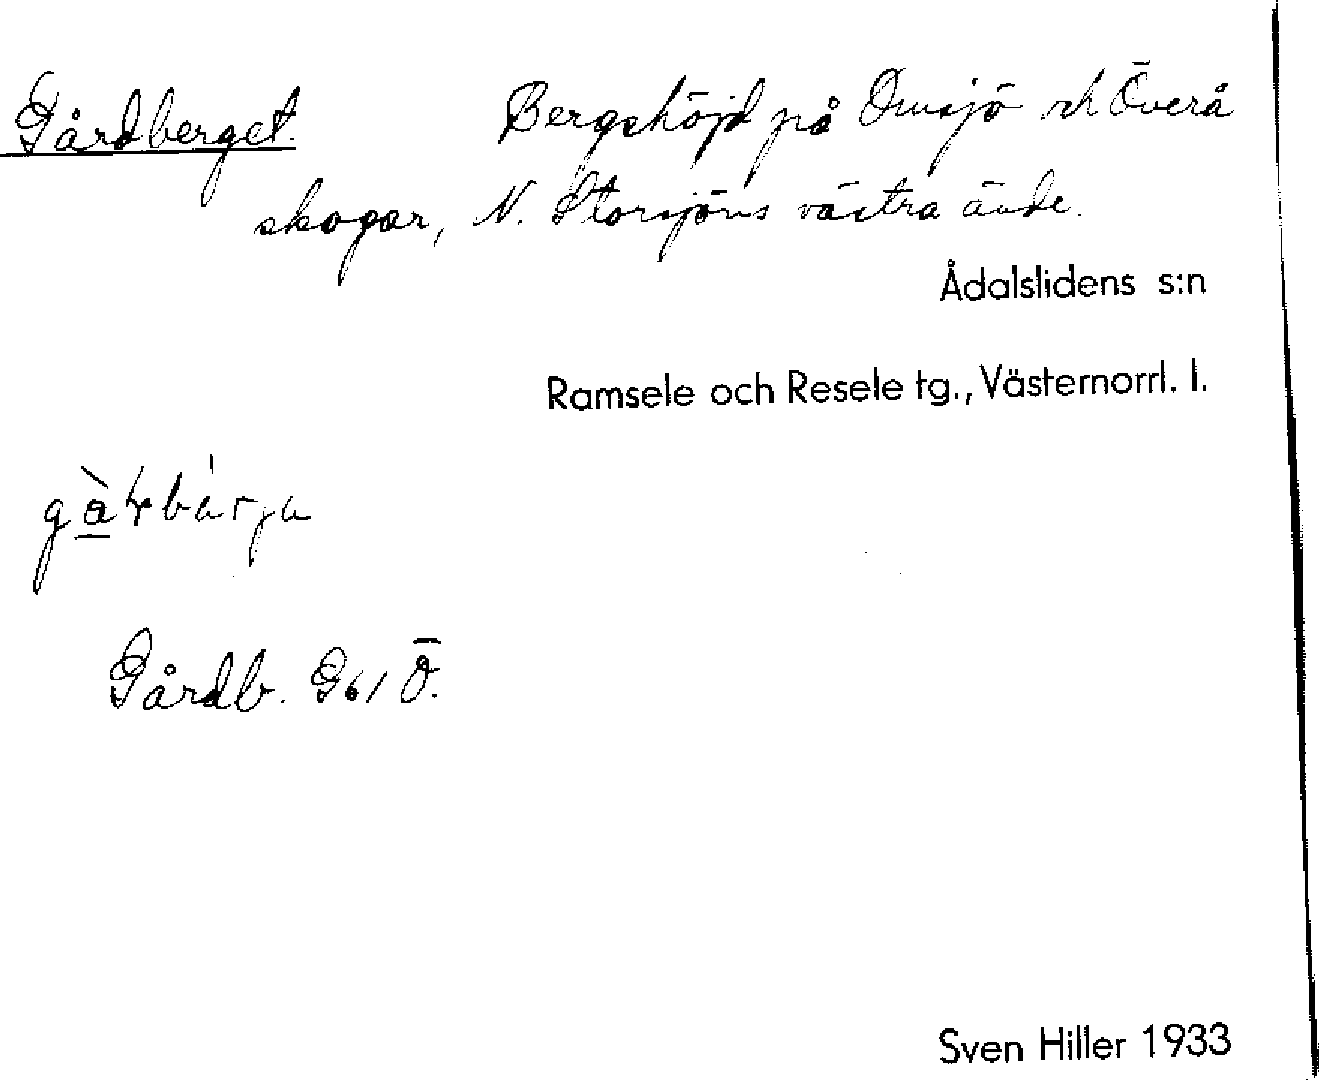 Gårdberget. Bergshöjd på Omsjö och Överå
skogar, N. Storsjöns västra ände.
Ådalslidens s:n
Ramsele och Resele tg., Västernorrl. l.
Gårdb. Gb1 Ö.
Sven Hiller 1933